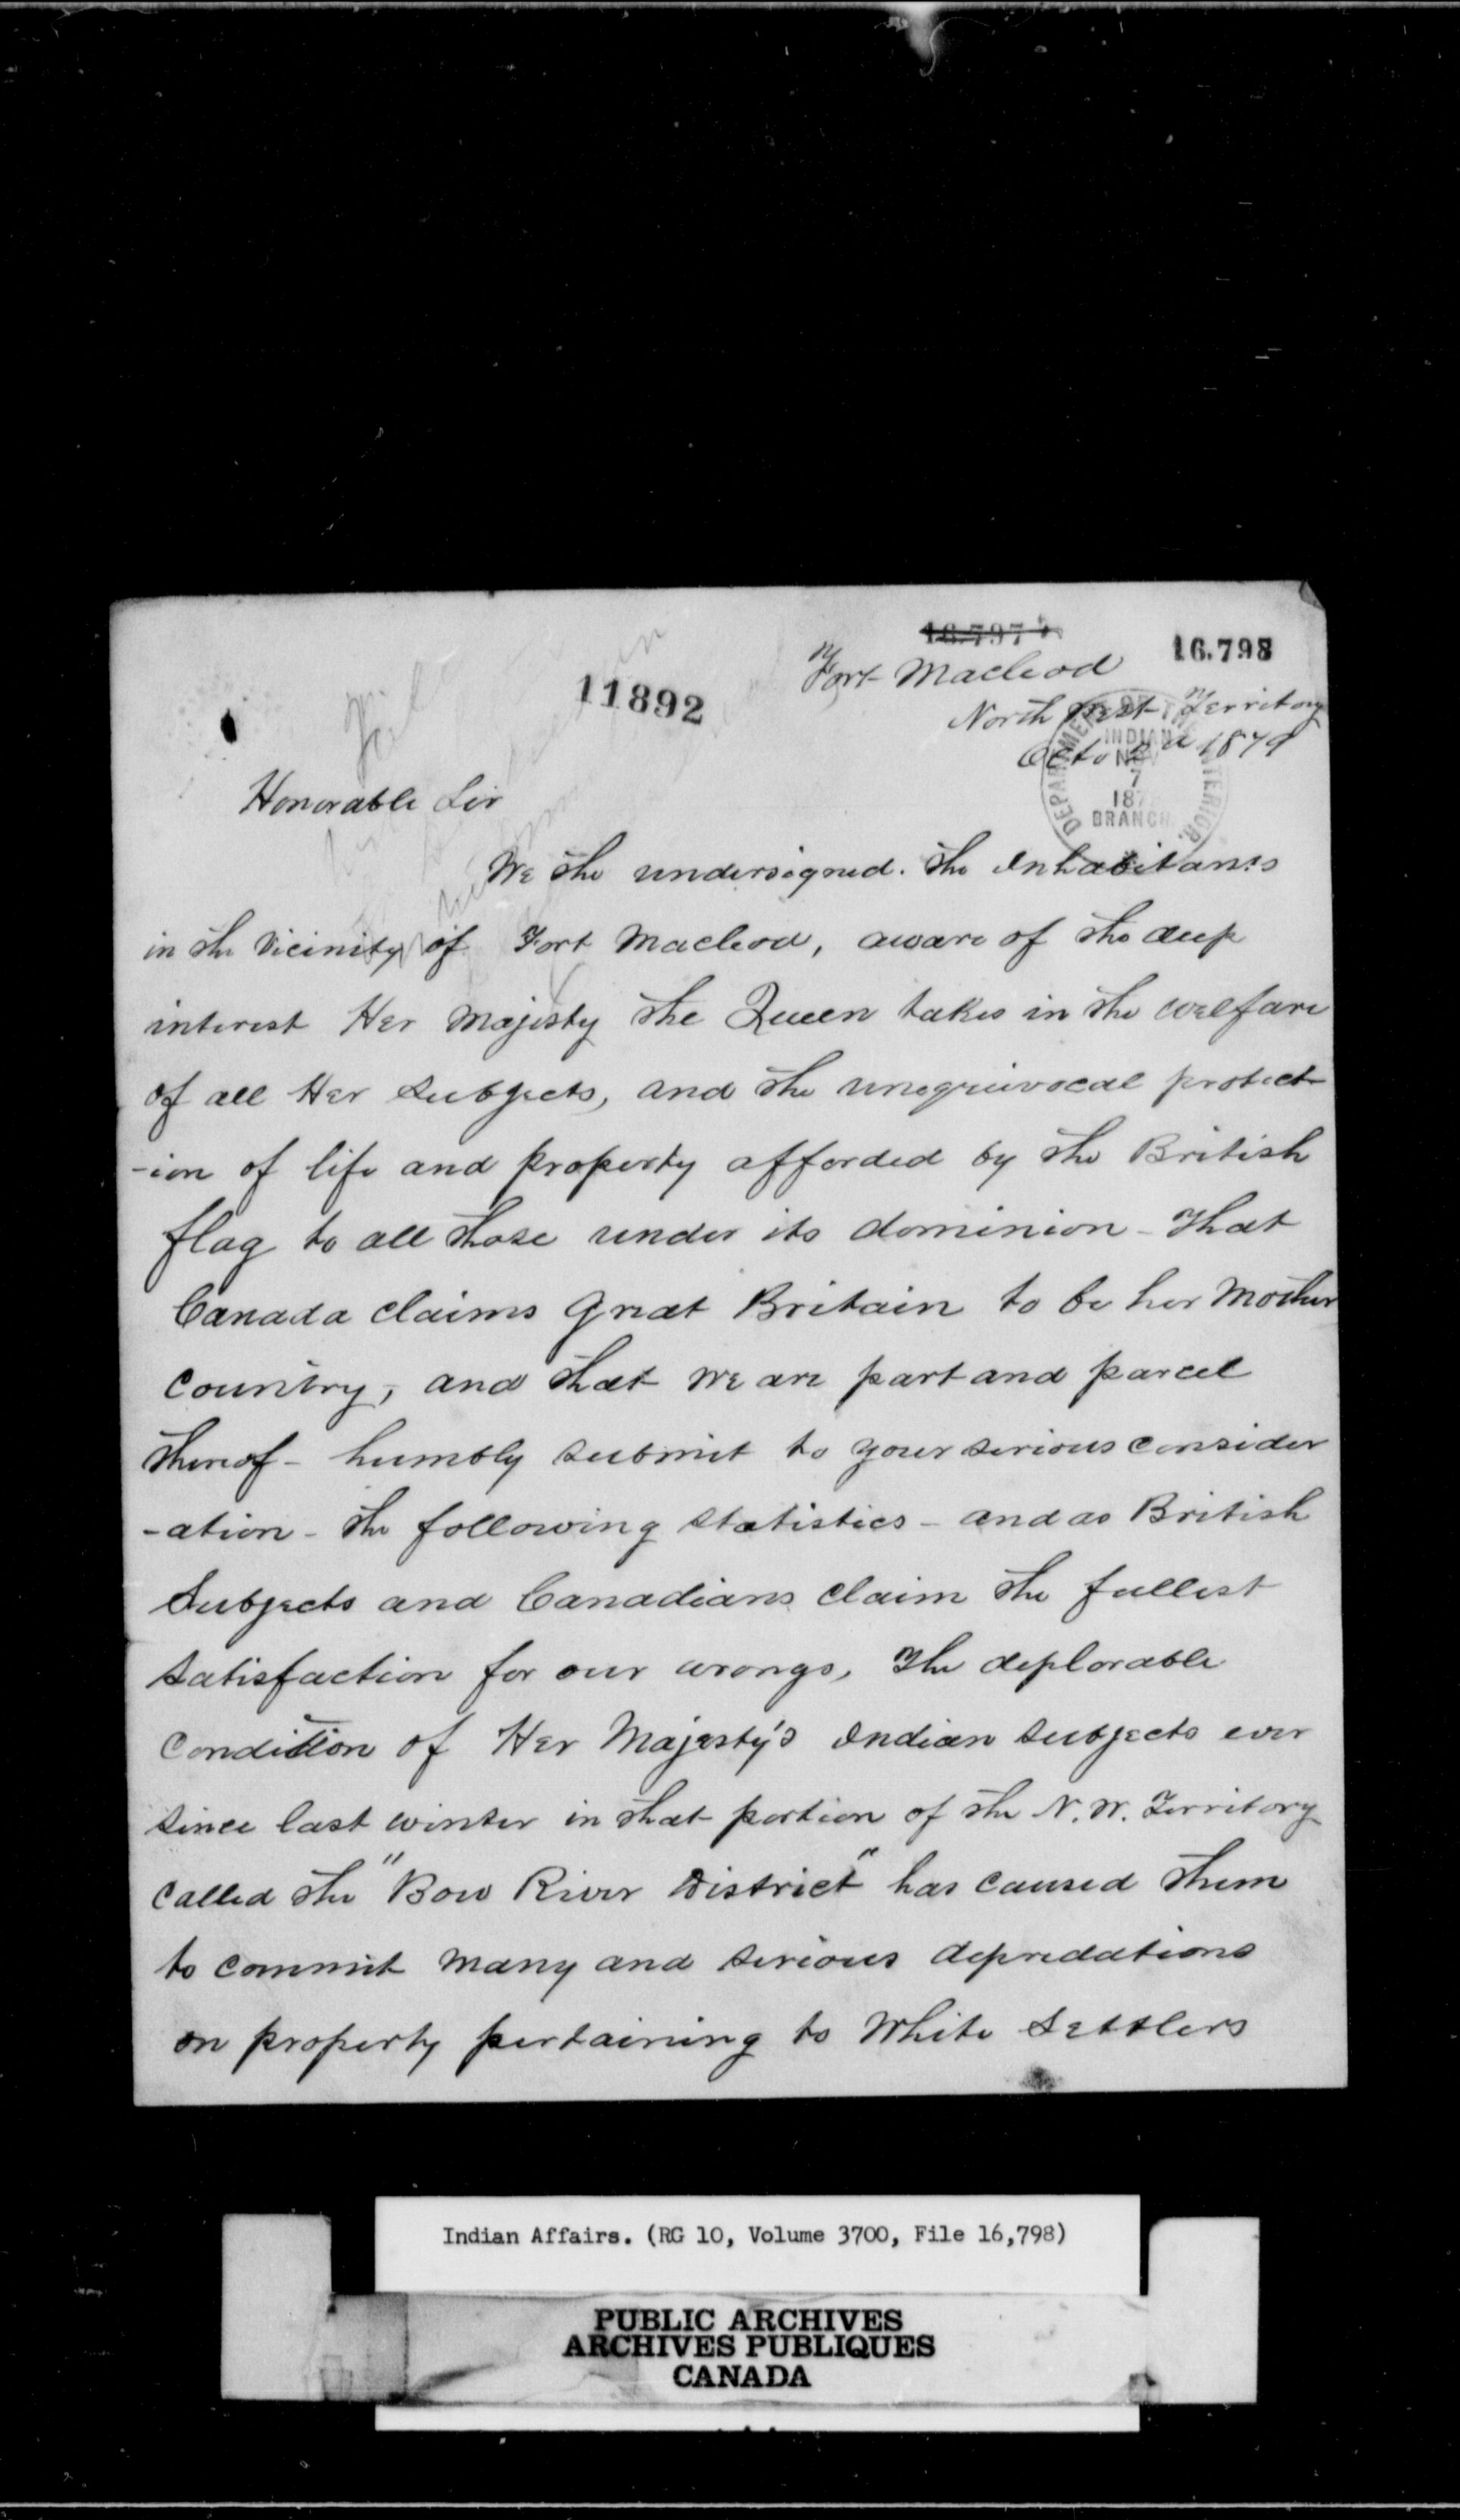 16.797
16.798
11892
Fort Macleod
North West Territory
Octo 2d 1879
DEPARTMENT OF THE INTERIOR.
INDIAN
NOV
7
187
BRANCH
File
Honorable Sir
We the undersigned. The Inhabitants
in the Vicinity of Fort Macleod, aware of the deep
interest Her Majesty the Queen takes in the welfare
of all Her Subjects, and the unequivocal protect
-ion of life and property afforded by the British
flag to all those under its dominion - That
Canada claims Great Britain to be her Mother
Country, and that we are part and parcel
thereof - humbly submit to your serious consider
-ation - the following statistics - and as British
Subjects and Canadians claim the fullest
satisfaction for our wrongs, The deplorable
condition of Her Majesty's Indian subjects ever
since last winter in that portion of the N. W. Territory
called the "Bow River District" has caused them
to commit many and serious depredations
on property pertaining to White Settlers
Indian Affairs. (RG 10, Volume 3700, File 16,798)
PUBLIC ARCHIVES
ARCHIVES PUBLIQUES
CANADA